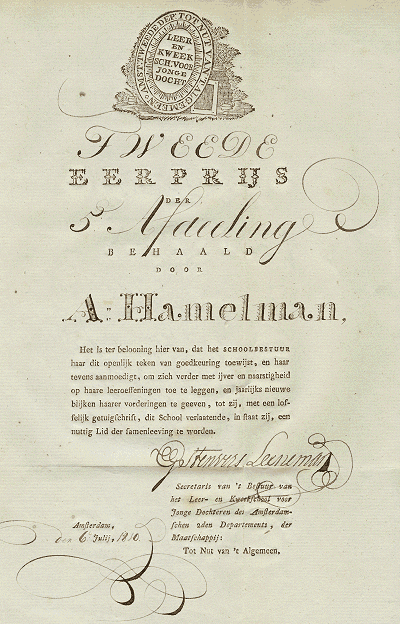 AMST: TWEEDE DEP: TOT NUT VAN 'T ALGEMEEN
LEER
EN
KWEEK
SCH. VOOR
JONGE
DOCHT.
TWEEDE
EERPRIJS
DER
5e Afdeeling
BEHAALD
DOOR
A: Hamelman,
Het is ter belooning hier van, dat het SCHOOLBESTUUR
haar dit openlijk teken van goedkeuring toewijst, en haar
tevens aanmoedigt, om zich verder met ijver en naarstigheid
op haare leeroeffeningen toe te leggen, en jaarlijks nieuwe
blijken haarer vorderingen te geeven, tot zij, met een lof-
felijk getuigschrift, dit School verlaatende, in staat zij, een
nuttig Lid der samenleeving te worden.
Leeneman
Secretaris van 't Bestuur van
het Leer- en Kweekschool voor
Jonge Dochteren des Amsterdam-
schen 2den Departements, der
Maatschappij:
Tot Nut van 't Algemeen.
Amsterdam,
den 6 Julij, 1810.